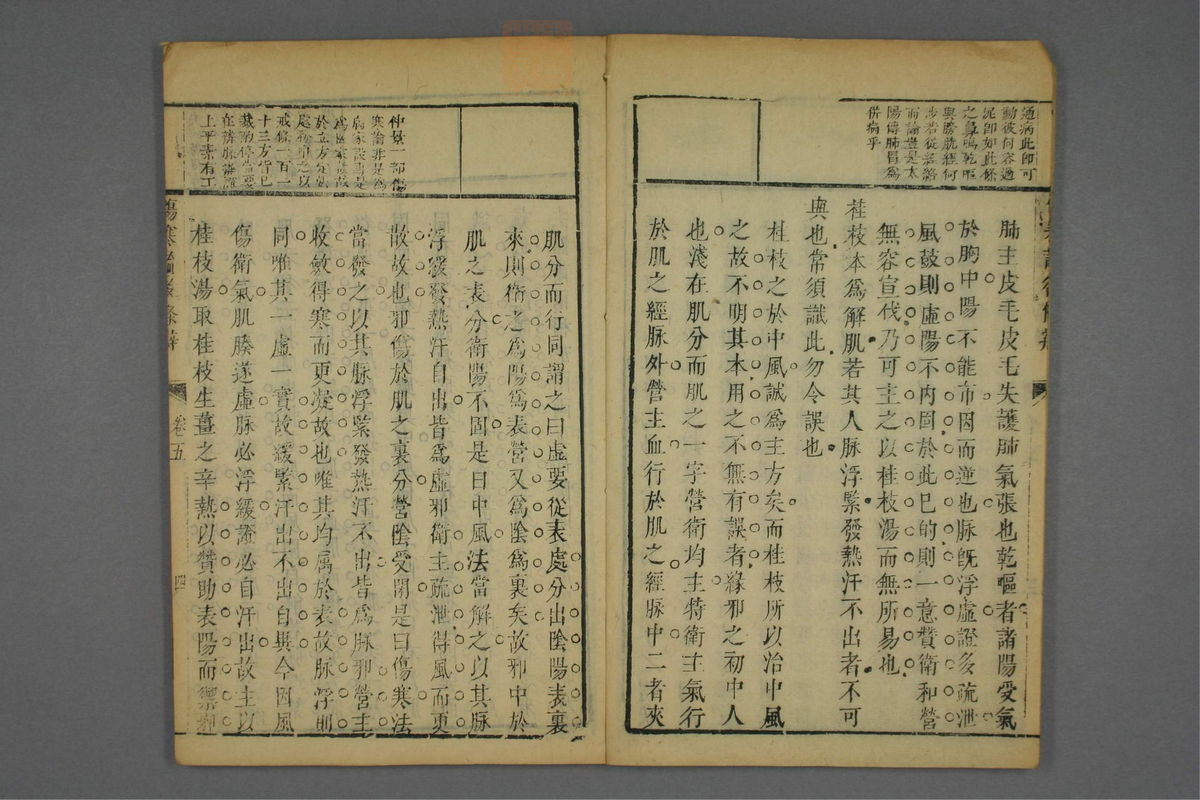 通病此即可
動彼何容過
泥即如此條
之鼻鳴乾嘔
與膀胱經何
涉若從諸將
而論豈是太
陽傳肺胃爲
併病乎
肺主皮毛皮毛失護肺氣張也乾嘔者諸陽受氣
於胸中陽不能布因而逆也脉旣浮虛證多疏泄
風鼓則虛陽不內固於此已的則一意贊衛和營
無容宣伐乃可主之以桂枝湯而無所易也
桂枝本爲解肌若其人脉浮緊發熱汗不出者不可
與也常須識此勿令誤也
桂枝之於中風誠爲主方矣而桂枝所以治中風
之故不明其本用之不無有誤者緣邪之初中人
也淺在肌分而肌之一字營衛均主特衛主氣行
於肌之經脉外營主血行於肌之經脉中二者夾
仲景一部傷
寒論非是爲
病家設乃是
爲醫家設故
於立方定法
處務叩之以
戒條一百一
十三方皆已
裁酌停當要
在辨脉辨證
上平素有工
肌分而行同謂之曰虛要從表處分出陰陽表裏
來則衛之爲陽爲表營又爲陰爲裏矣故邪中於
肌之表分衛陽不固是曰中風法當解之以其脉
浮緩發熱汗自出皆爲虛邪衛主疏泄得風而更
散故也邪傷於肌之裏分營陰受閉是曰傷寒法
當發之以其脉浮緊發熱汗不出皆爲脉邪營主
收斂得寒而更凝故也唯其均属於表故脉浮則
同唯其一虛一實故緩緊汗出不出自異今因風
傷衛氣肌腠遂虛脉必浮緩證必自汗出故主以
桂枝湯取桂枝生薑之辛熱以贊助表陽而禦邪
傷寒論後條辨
卷五
四